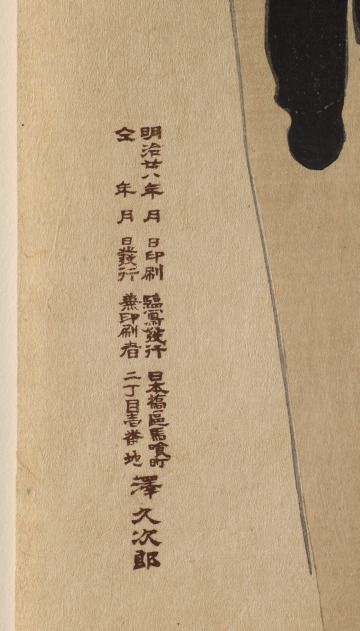 明治廿八年 月 日印刷
仝 年 月 日發行
臨寫發行
兼印刷者
日本橋區馬喰町
二丁目壱番地
澤久次郎